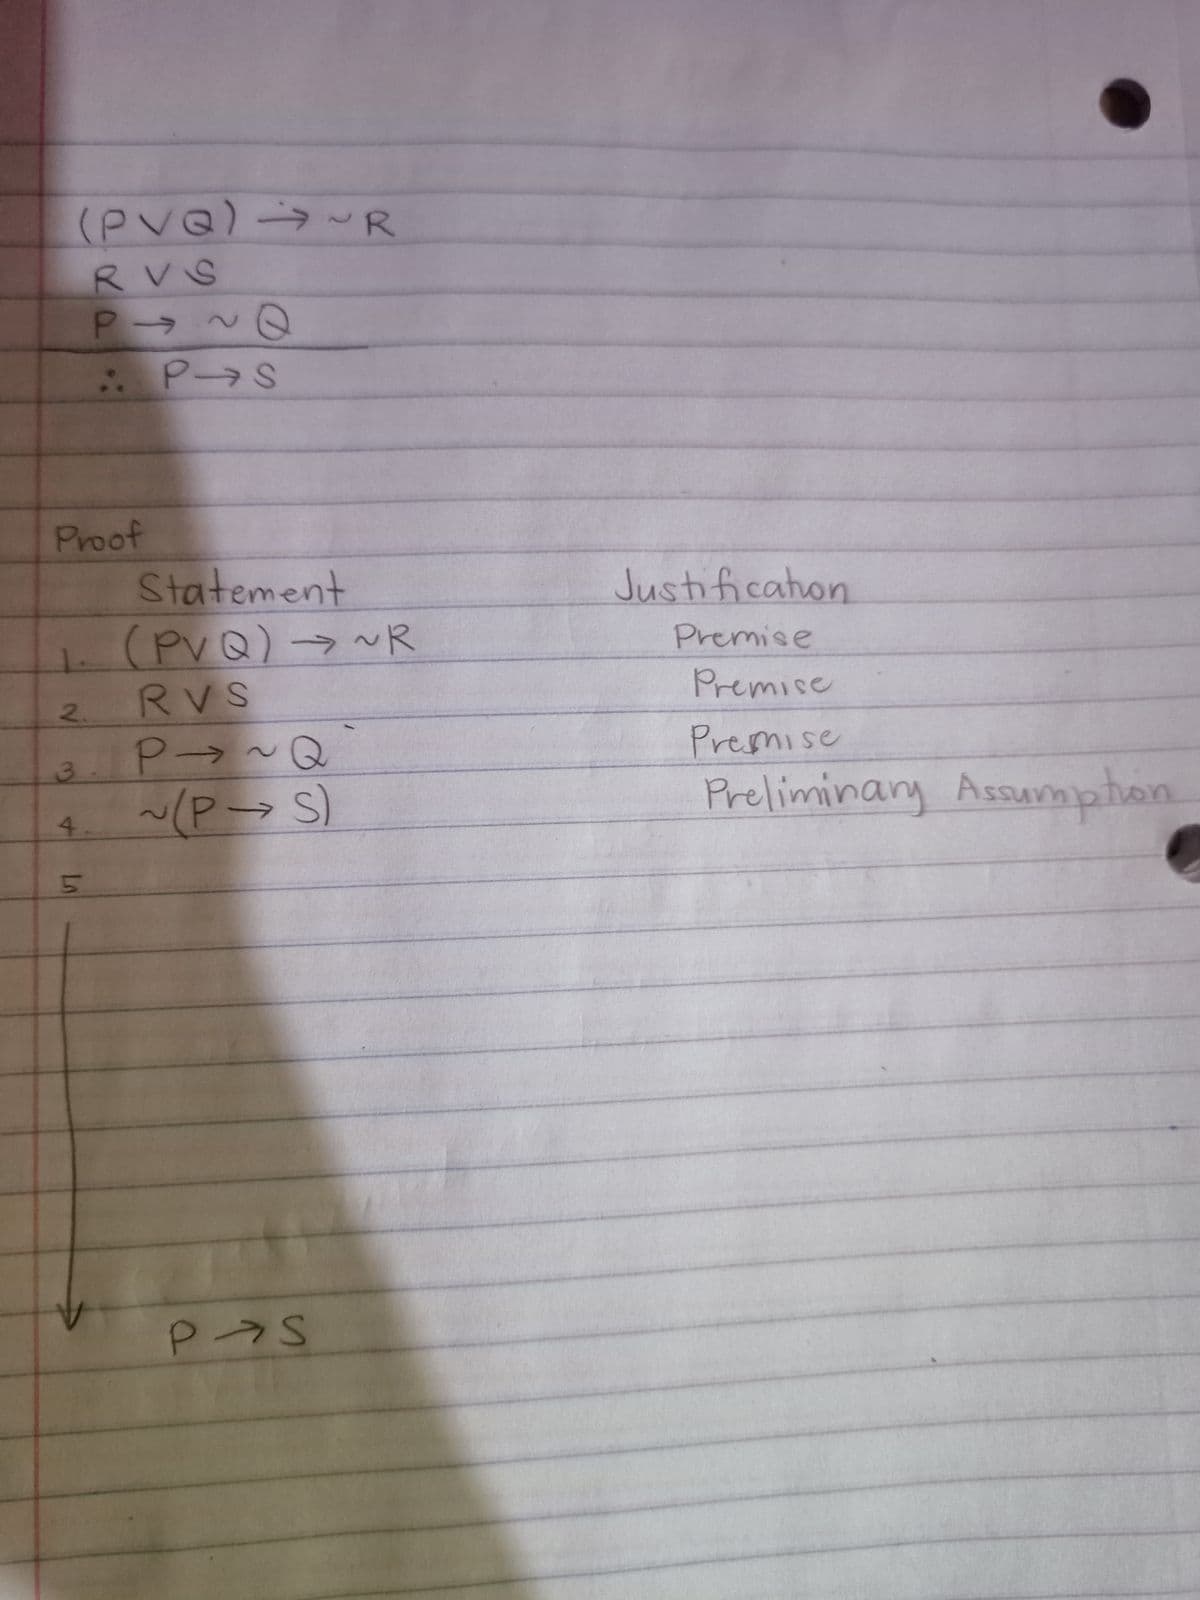 (P∨Q) → ~R
R ∨ S
P → ~Q
∴ P→S
Proof
Statement Justification
1. (P∨Q) → ~R Premise
2. R∨S Premise
3. P→ ~Q Premise
4. ~(P→ S) Preliminary Assumption
5
P→S